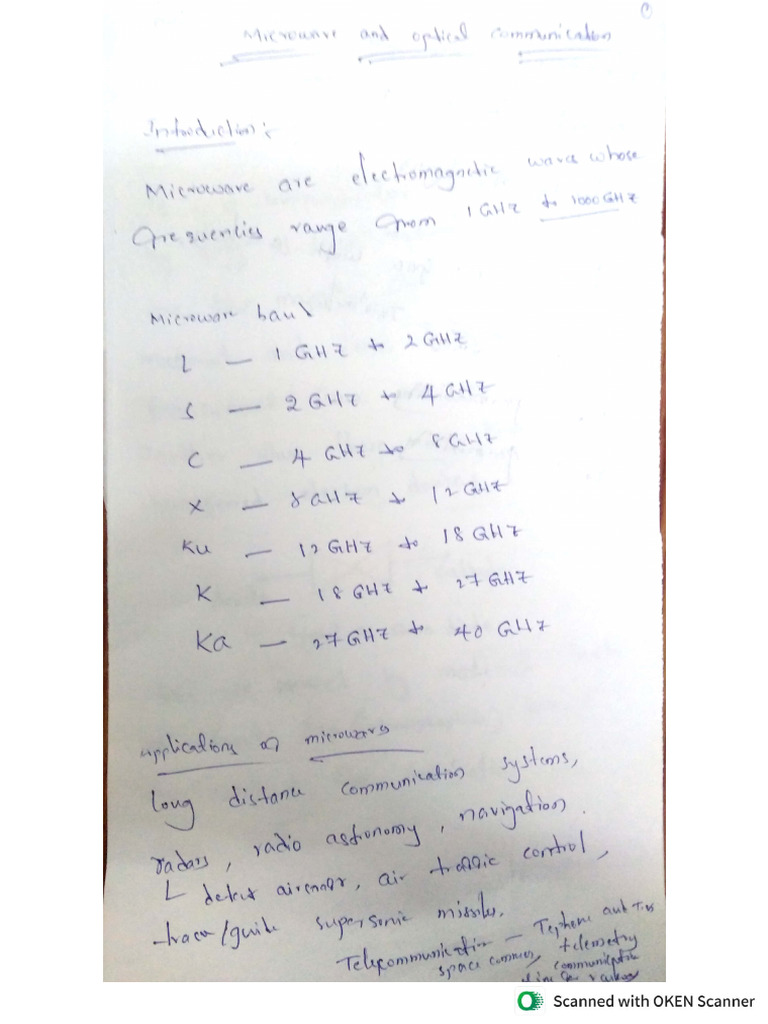 Microwave and optical communication
Introduction:
Microwave are electromagnetic waves whose
frequencies range from 1 GHz to 1000 GHz
Microwave band
L — 1 GHz to 2 GHz
S — 2 GHz to 4 GHz
C — 4 GHz to 8 GHz
X — 8 GHz to 12 GHz
Ku — 12 GHz to 18 GHz
K — 18 GHz to 27 GHz
Ka — 27 GHz to 40 GHz
Applications of microwaves
long distance communication systems,
radars, radio astronomy, navigation.
detect aircraft, air traffic control,
/guide supersonic missiles.
Telecommunication —
space telemetry
communication
Scanned with OKEN Scanner